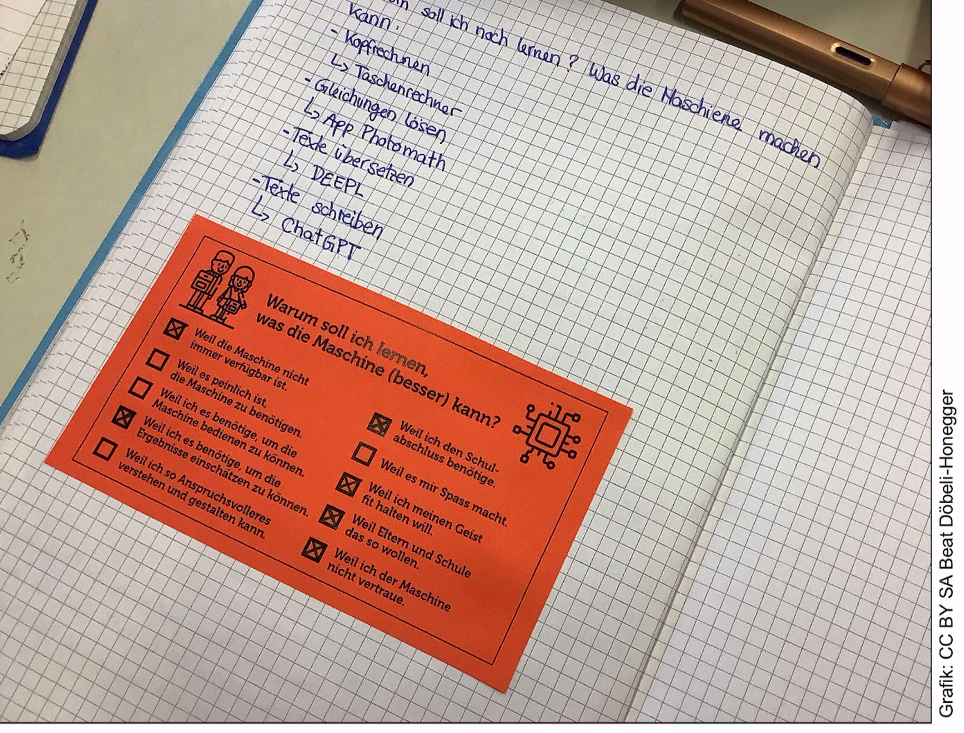 soll ich noch lernen? Was die Maschiene machen
kann:
- Kopfrechnen
↳ Taschenrechner
- Gleichungen lösen
↳ App Photomath
- Texte übersetzen
↳ DEEPL
- Texte schreiben
↳ ChatGPT
Warum soll ich lernen,
was die Maschine (besser) kann?
☒ Weil die Maschine nicht
immer verfügbar ist.
☐ Weil es peinlich ist,
die Maschine zu benötigen.
☐ Weil ich es benötige, um die
Maschine bedienen zu können.
☒ Weil ich es benötige, um die
Ergebnisse einschätzen zu können.
☐ Weil ich so Anspruchsvolleres
verstehen und gestalten kann.
☒ Weil ich den Schul-
abschluss benötige.
☐ Weil es mir Spass macht.
☒ Weil ich meinen Geist
fit halten will.
☒ Weil Eltern und Schule
das so wollen.
☒ Weil ich der Maschine
nicht vertraue.
Grafik: CC BY SA Beat Döbeli-Honegger